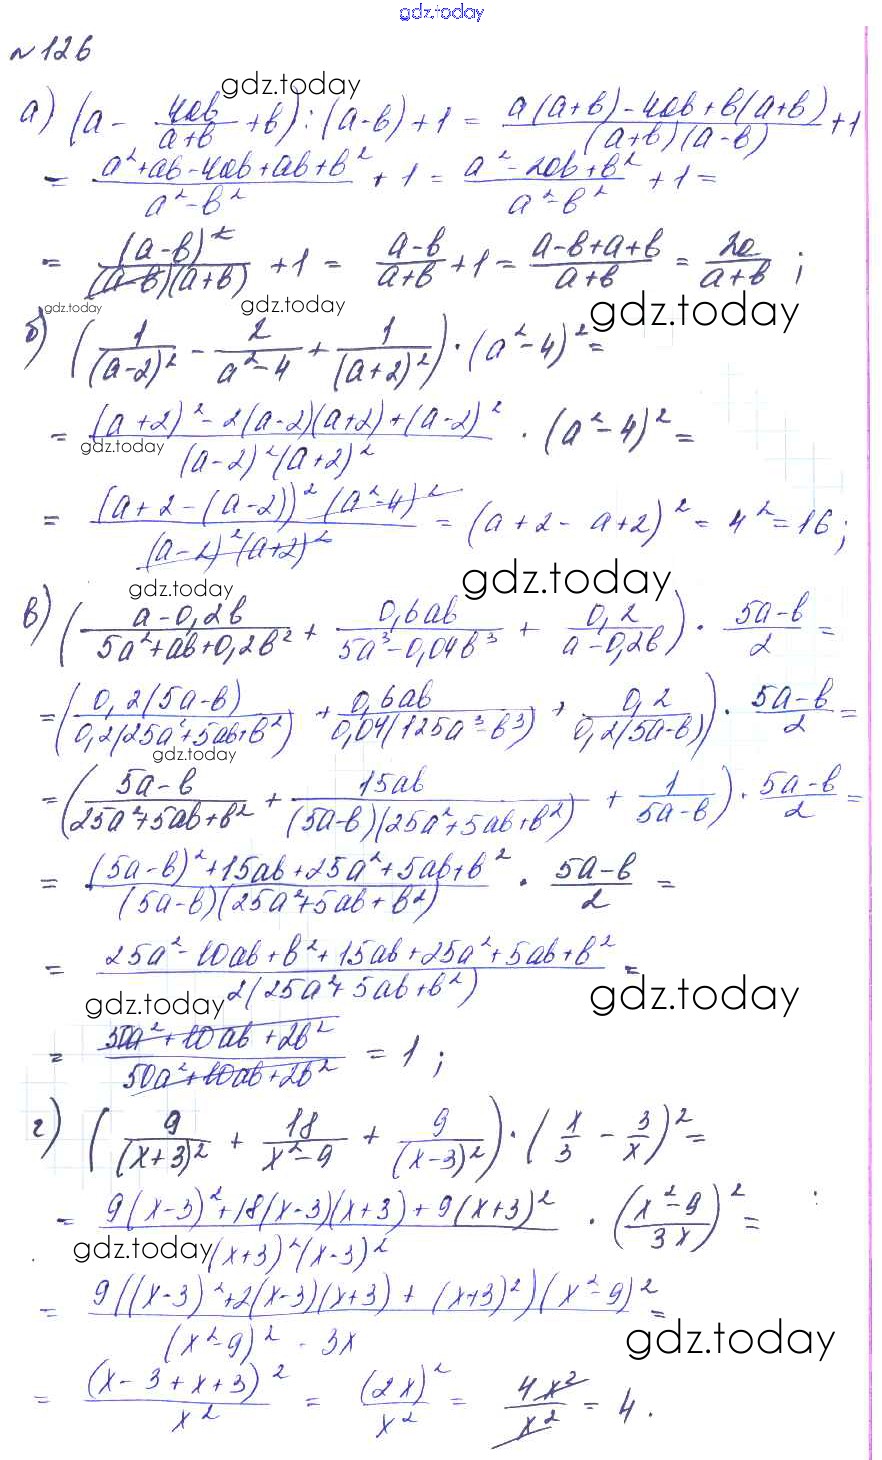 gdz.today
№126
gdz.today
а) (a - 4ab/(a+b) + b) : (a-b) + 1 = (a(a+b) - 4ab + b(a+b))/((a+b)(a-b)) + 1
= (a²+ab-4ab+ab+b²)/(a²-b²) + 1 = (a²-2ab+b²)/(a²-b²) + 1 =
= (a-b)²/((a-b)(a+b)) + 1 = (a-b)/(a+b) + 1 = (a-b+a+b)/(a+b) = 2a/(a+b) ;
gdz.today gdz.today gdz.today
б) (1/(a-2)² - 2/(a²-4) + 1/(a+2)²) · (a²-4)² =
= ((a+2)² - 2(a-2)(a+2) + (a-2)²)/((a-2)²(a+2)²) · (a²-4)² =
gdz.today
= ((a+2-(a-2))² (a²-4)²)/((a-2)²(a+2)²) = (a+2-a+2)² = 4² = 16 ;
gdz.today gdz.today
в) ((a-0,2b)/(5a²+ab+0,2b²) + 0,6ab/(5a³-0,04b³) + 0,2/(a-0,2b)) · (5a-b)/2 =
= (0,2(5a-b)/(0,2(25a²+5ab+b²)) + 0,6ab/(0,04(125a³-b³)) + 0,2/(0,2(5a-b))) · (5a-b)/2 =
gdz.today
= ((5a-b)/(25a²+5ab+b²) + 15ab/((5a-b)(25a²+5ab+b²)) + 1/(5a-b)) · (5a-b)/2 =
= ((5a-b)²+15ab+25a²+5ab+b²)/((5a-b)(25a²+5ab+b²)) · (5a-b)/2 =
= (25a²-10ab+b²+15ab+25a²+5ab+b²)/(2(25a²+5ab+b²)) =
gdz.today gdz.today
= (50a²+10ab+2b²)/(50a²+10ab+2b²) = 1 ;
г) (9/(x+3)² + 18/(x²-9) + 9/(x-3)²) · (x/3 - 3/x)² =
= (9(x-3)²+18(x-3)(x+3)+9(x+3)²)/((x+3)²(x-3)²) · ((x²-9)/3x)² =
gdz.today
= (9((x-3)²+2(x-3)(x+3)+(x+3)²)(x²-9)²)/((x²-9)² · 3x) =
gdz.today
= (x-3+x+3)²/x² = (2x)²/x² = 4x²/x² = 4 .